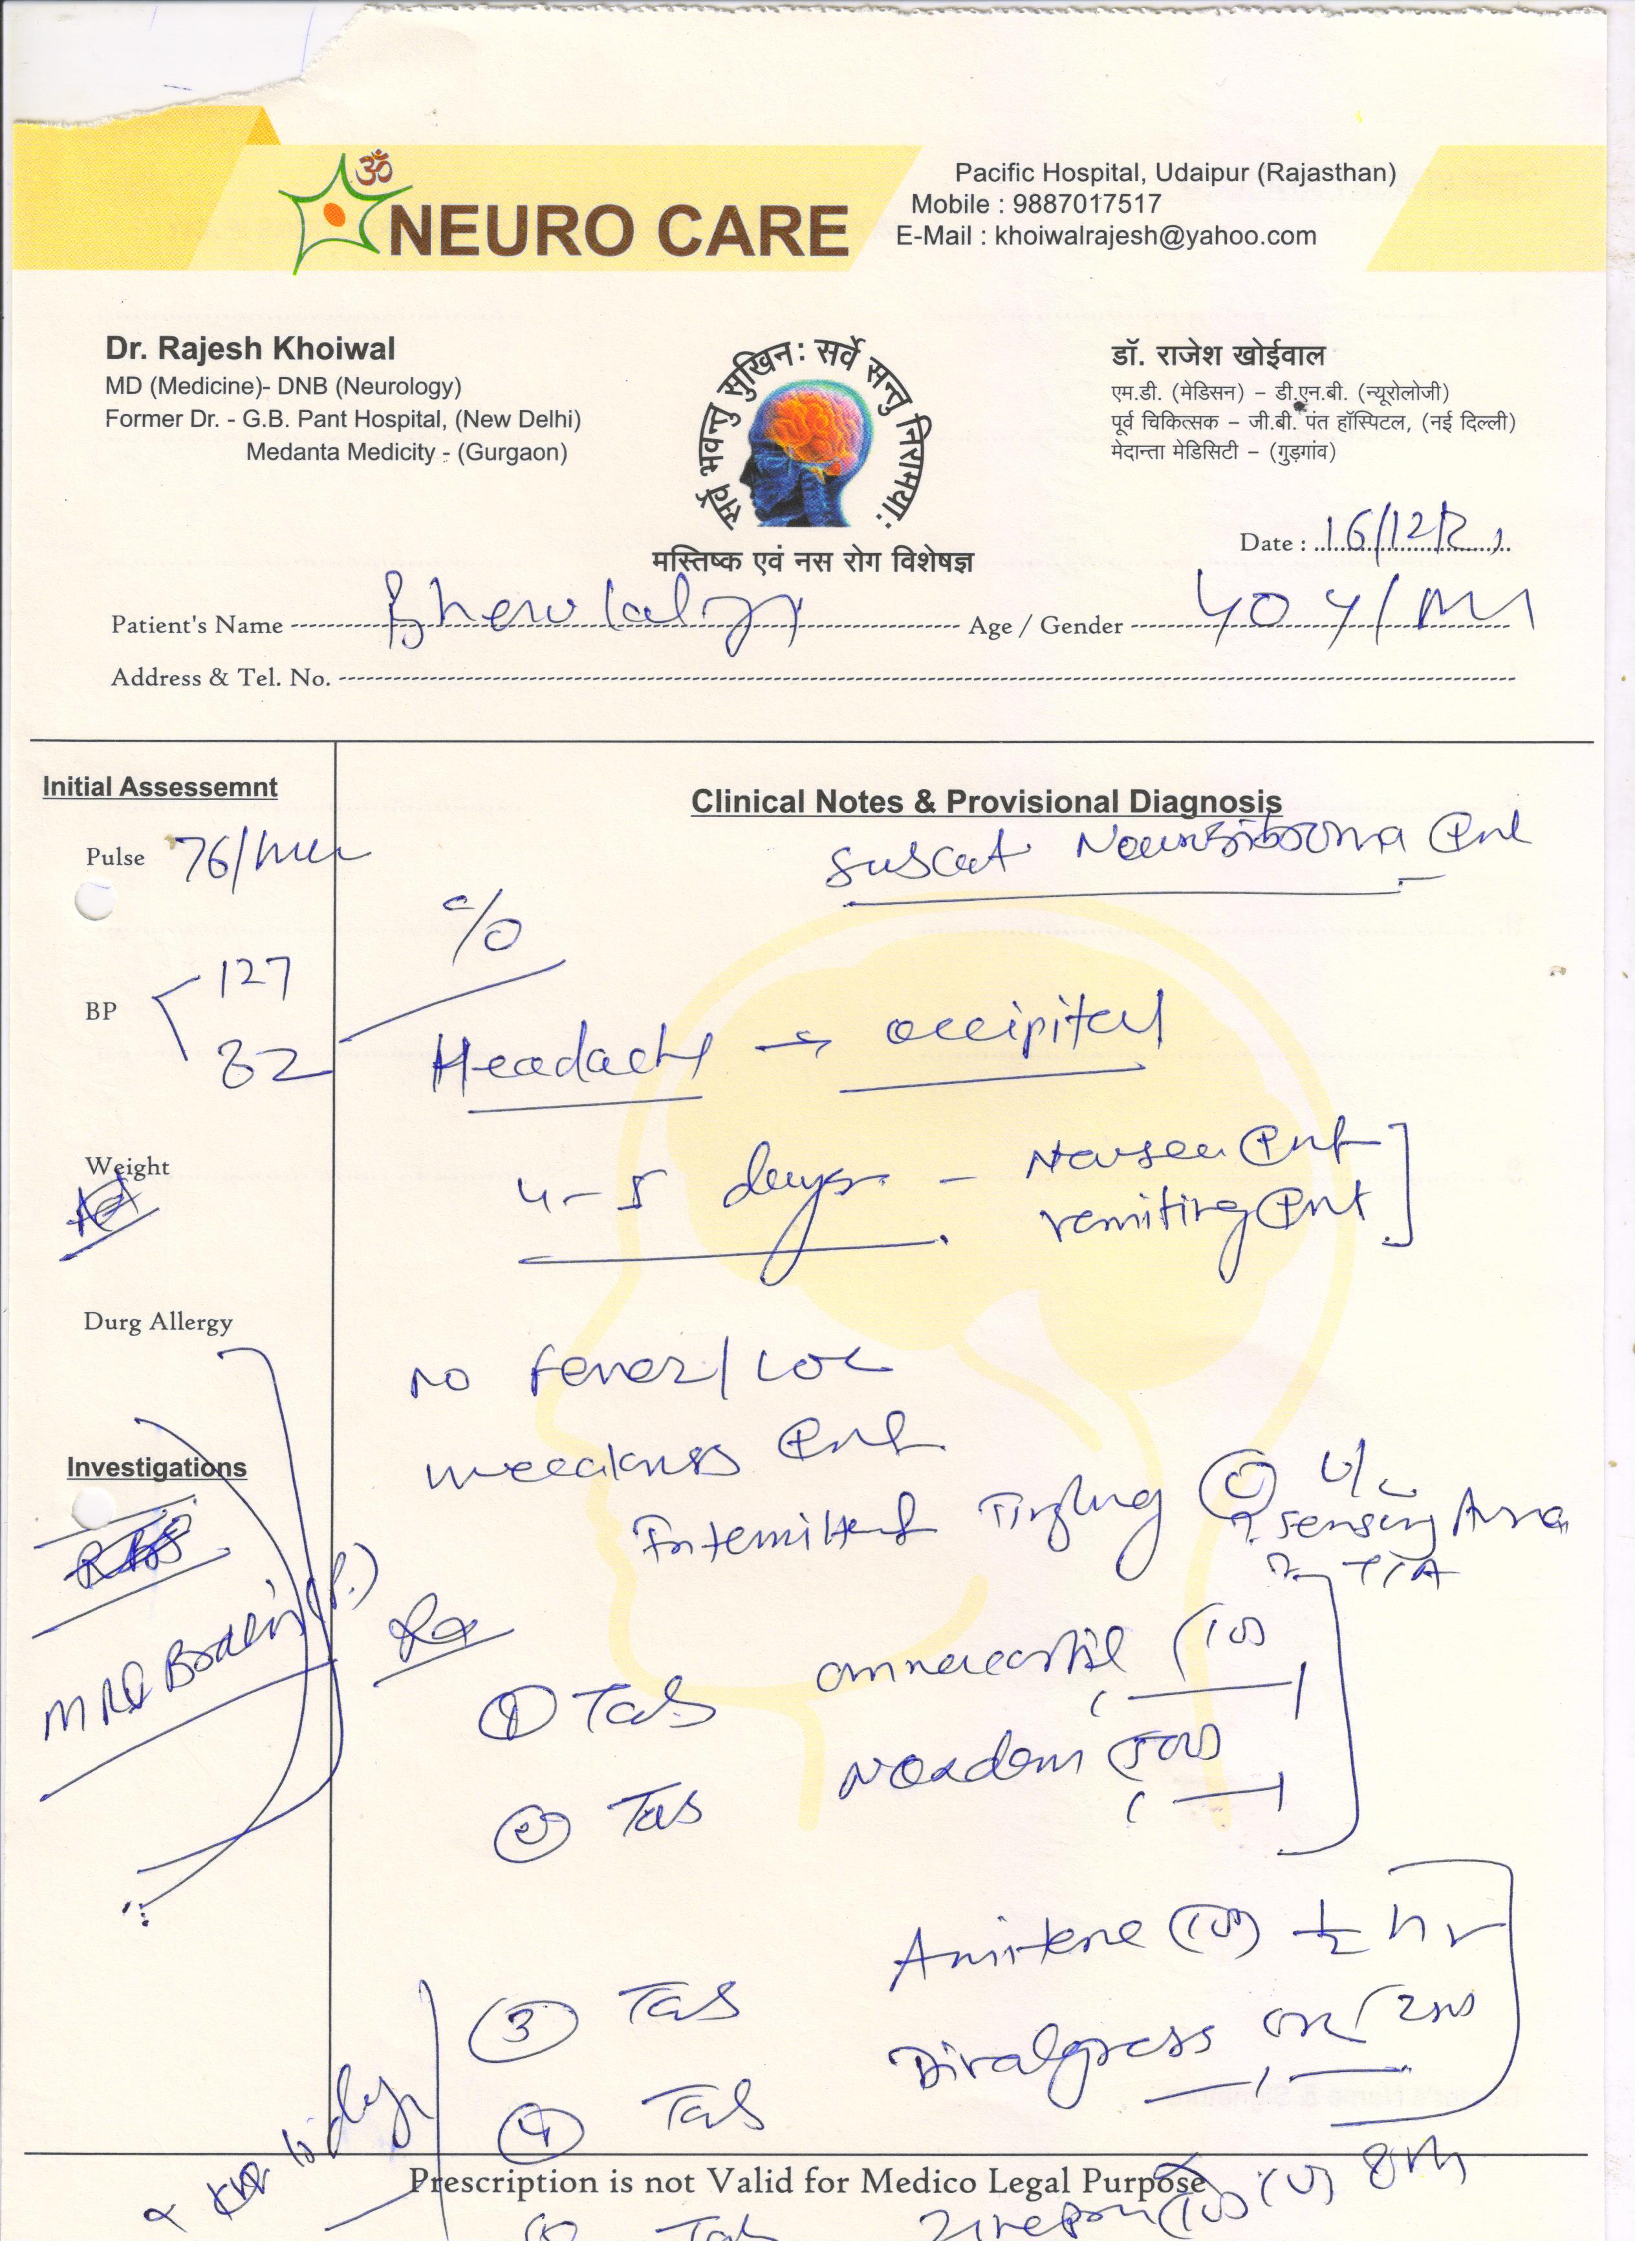 ॐ
NEURO CARE
Pacific Hospital, Udaipur (Rajasthan)
Mobile : 9887017517
E-Mail : khoiwalrajesh@yahoo.com
Dr. Rajesh Khoiwal
MD (Medicine)- DNB (Neurology)
Former Dr. - G.B. Pant Hospital, (New Delhi)
Medanta Medicity - (Gurgaon)
सर्वे भवन्तु सुखिन: सर्वे सन्तु निरामया:
मस्तिष्क एवं नस रोग विशेषज्ञ
डॉ. राजेश खोईवाल
एम.डी. (मेडिसन) – डी.एन.बी. (न्यूरोलोजी)
पूर्व चिकित्सक – जी.बी. पंत हॉस्पिटल, (नई दिल्ली)
मेदान्ता मेडिसिटी – (गुड़गांव)
Date : 16/12/21
Patient's Name Bherulal Age / Gender 40 y/M
Address & Tel. No.
Initial Assessemnt
Clinical Notes & Provisional Diagnosis
Pulse 76/min
c/o
BP 127
82
Headache → occipital
Weight
4-5 days - Nausea Pnt
vomiting Pnt
Durg Allergy
No fever/LOC
weakness Pnt
Investigations
Intermittent Tingling U/L
? Sensory Aura
? TIA
MRI Brain (P.)
Rx
① Tab (10)
② Tab (500)
③ Tab (10) ½ hr
④ Tab Divalgress (250)
x 10 days
Prescription is not Valid for Medico Legal Purpose
Tab (10)